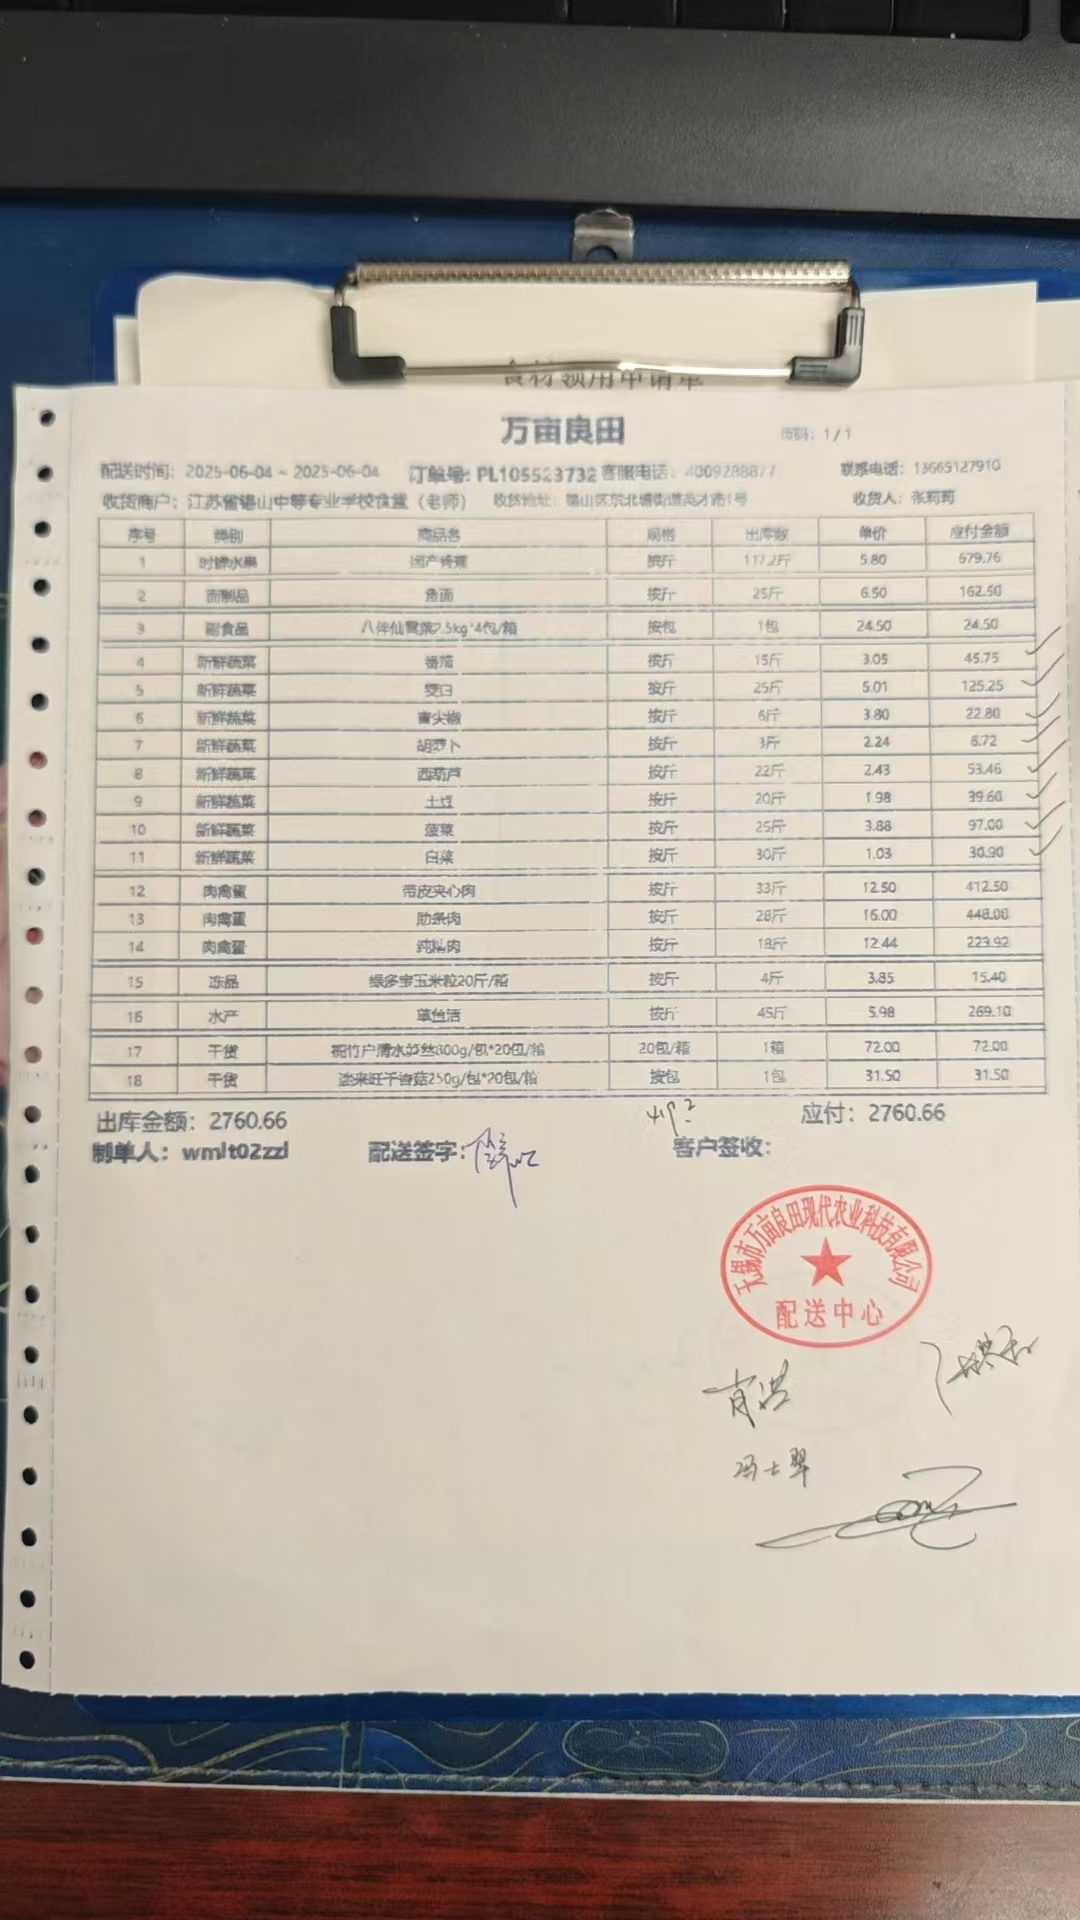 食材领用申请单
万亩良田
页码：1/1
配送时间：2025-06-04 ~ 2025-06-04 订单号：PL105523732 客服电话：4009288877 联系电话：13665127910
收货商户：江苏省锡山中等专业学校食堂（老师） 收货地址：锡山区东北塘街道英才路1号 收货人：张莉莉
序号 类别 商品名 规格 出库数 单价 应付金额
1 时鲜水果 国产香蕉 按斤 117.2斤 5.80 679.76
2 面制品 鱼面 按斤 25斤 6.50 162.50
3 副食品 八伴仙雪菜2.5kg*4包/箱 按包 1包 24.50 24.50
4 新鲜蔬菜 番茄 按斤 15斤 3.05 45.75
5 新鲜蔬菜 茭白 按斤 25斤 5.01 125.25
6 新鲜蔬菜 青尖椒 按斤 6斤 3.80 22.80
7 新鲜蔬菜 胡萝卜 按斤 3斤 2.24 6.72
8 新鲜蔬菜 西葫芦 按斤 22斤 2.43 53.46
9 新鲜蔬菜 土豆 按斤 20斤 1.98 39.60
10 新鲜蔬菜 菠菜 按斤 25斤 3.88 97.00
11 新鲜蔬菜 白菜 按斤 30斤 1.03 30.90
12 肉禽蛋 带皮夹心肉 按斤 33斤 12.50 412.50
13 肉禽蛋 肋条肉 按斤 28斤 16.00 448.00
14 肉禽蛋 纯精肉 按斤 18斤 12.44 223.92
15 冻品 绿多宝玉米粒20斤/箱 按斤 4斤 3.85 15.40
16 水产 草鱼活 按斤 45斤 5.98 269.10
17 干货 清水笋丝800g/包*20包/箱 20包/箱 1箱 72.00 72.00
18 干货 干香菇250g/包*20包/箱 按包 1包 31.50 31.50
出库金额：2760.66 应付：2760.66
制单人：wmlt02zzl 配送签字： 客户签收：
无锡市万亩良田现代农业科技有限公司
配送中心
肖洪
冯士翠